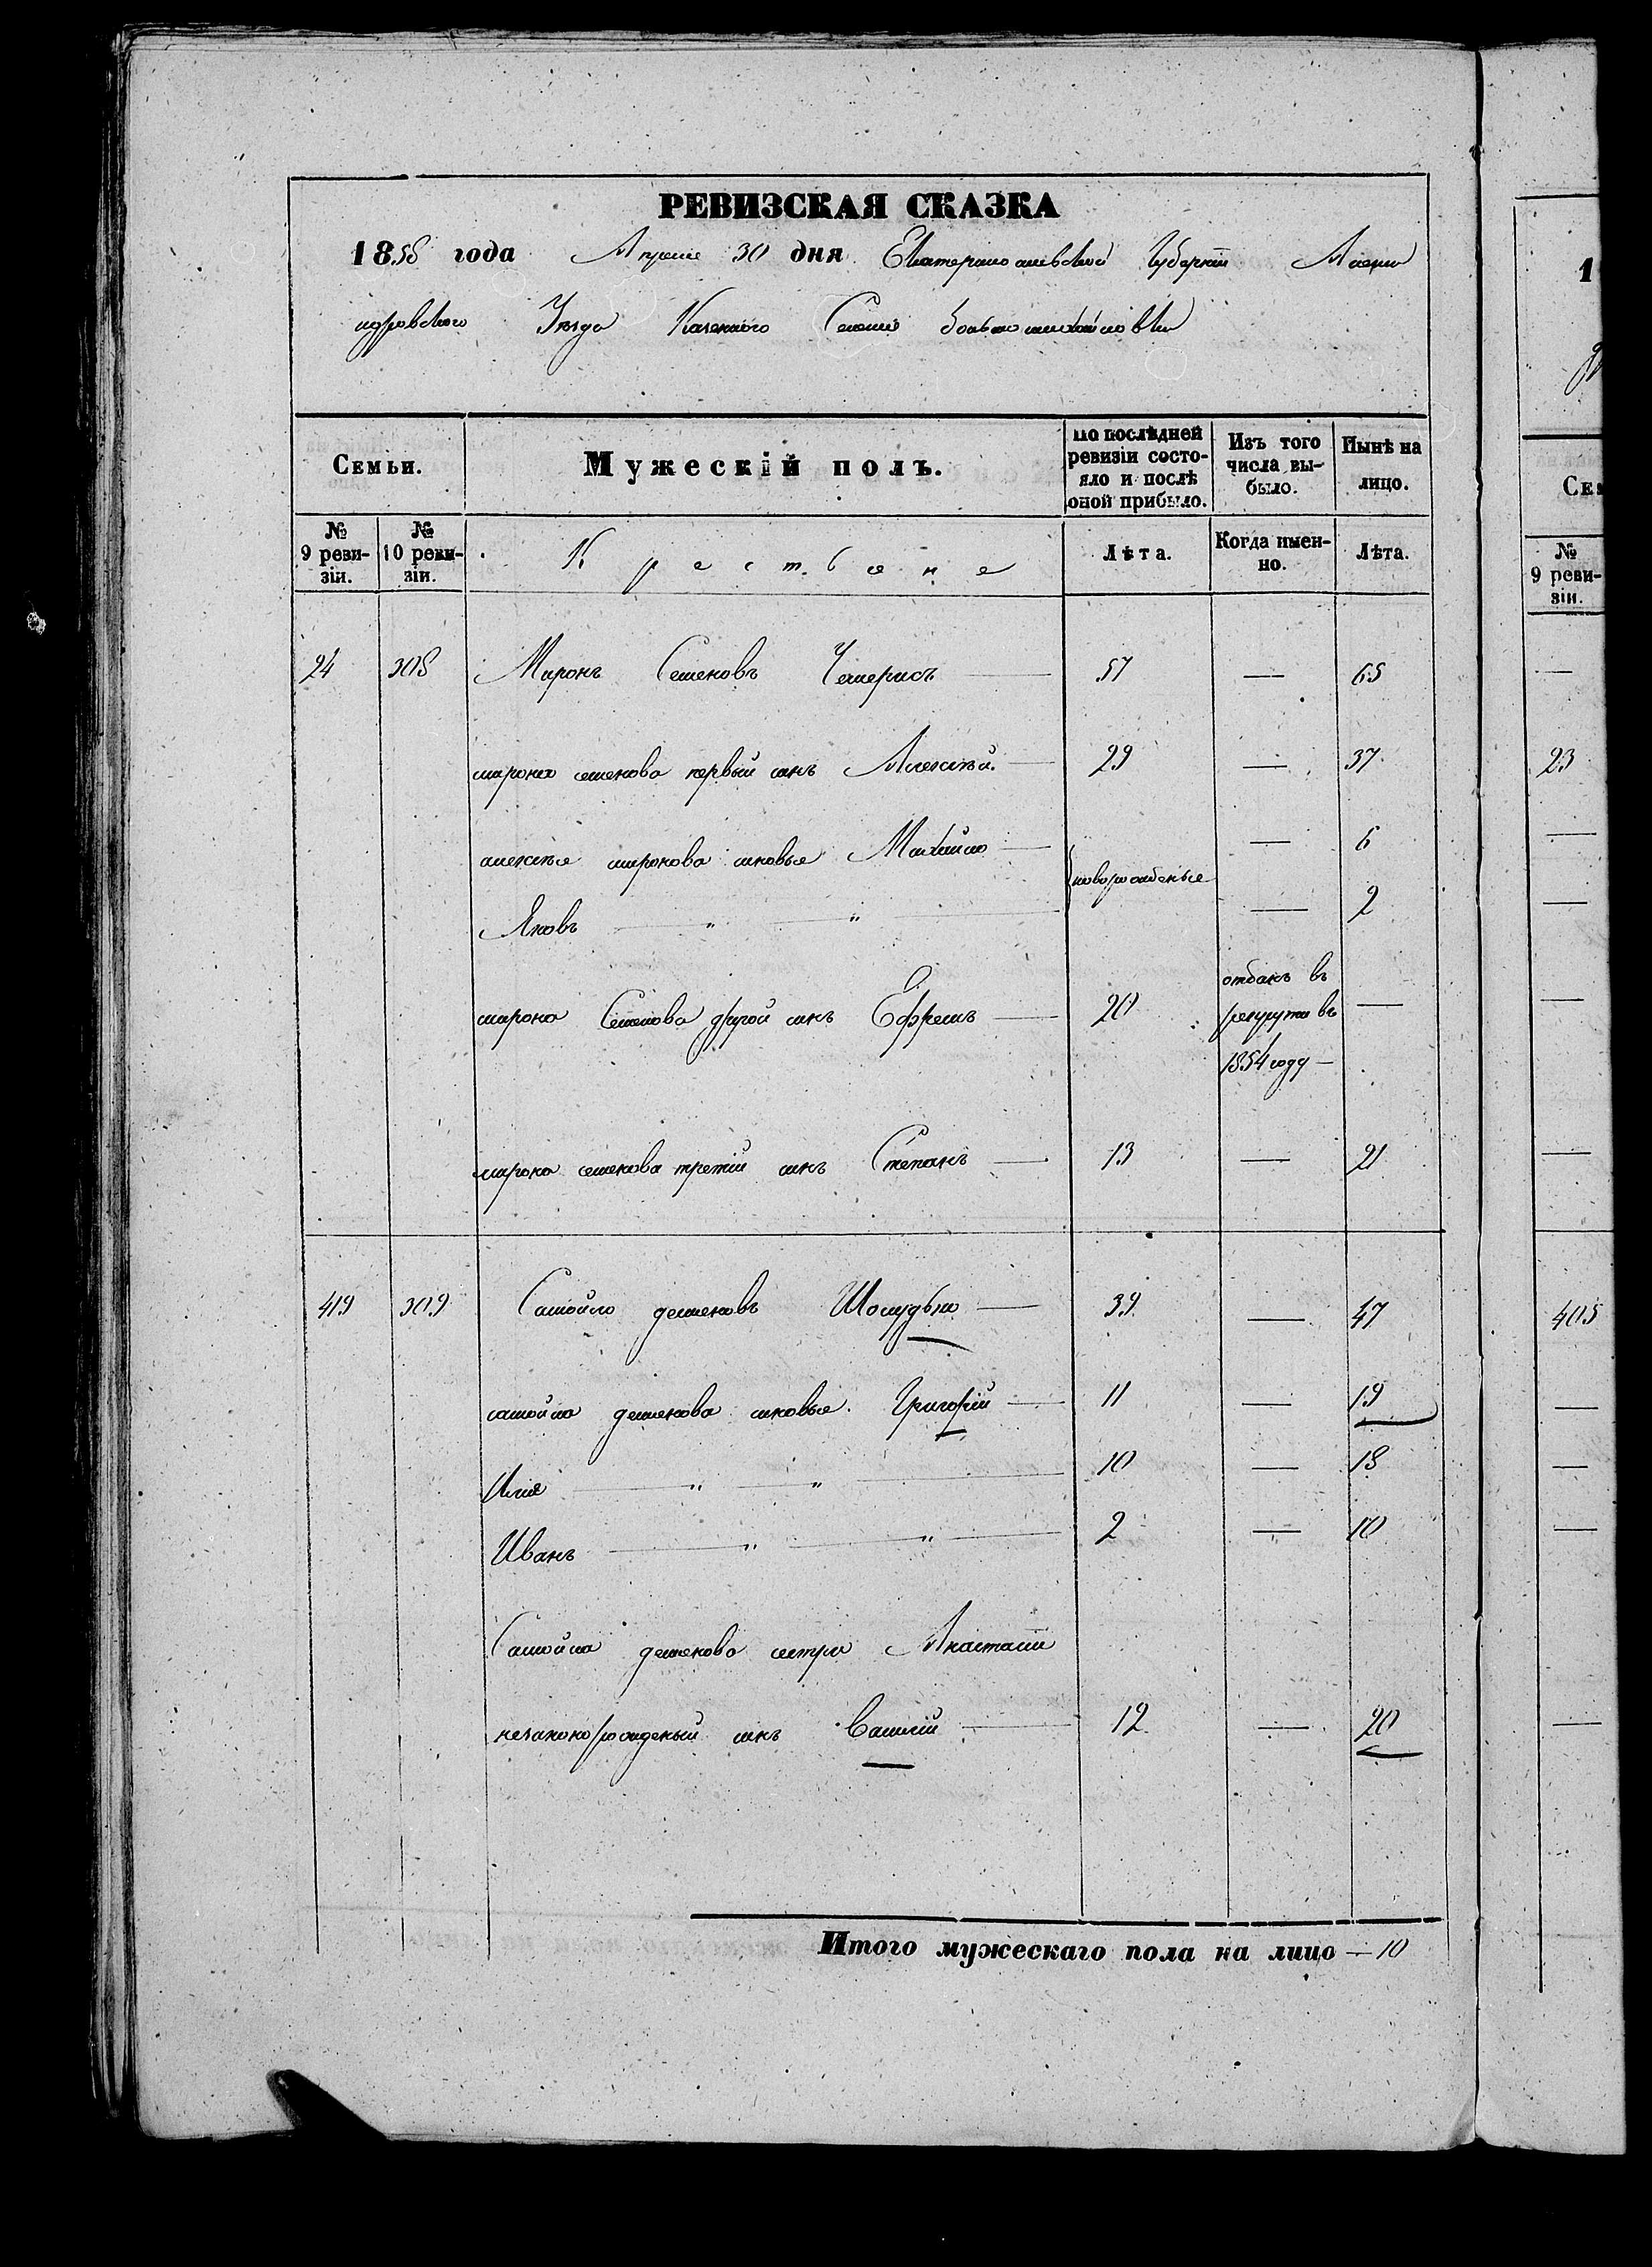 РЕВИЗСКАЯ СКАЗКА
1858 года Апреля 30 дня Екатеринославской Губернiи Алексан
дровского Уезда Казенного Селенiя Больше михайловки
Семьи. Мужескій полъ. По послѣдней ревизіи состояло и послѣ оной прибыло. Изъ того числа выбыло. Нынѣ на лицо.
№ 9 ревизіи. № 10 ревизіи. Крестьяне Лѣта. Когда именно. Лѣта.
24 308 Миронъ Семеновъ Чемерисъ — 57 — 65
мирона семенова первый сынъ Алексѣй — 29 — 37
алексѣя миронова сыновья Михайло — — 6
новорожденые
Яковъ " " — 2
мирона Семенова другой сынъ Ефремъ — 20 отданъ въ рекруты въ 1854 году — —
мирона семенова третій сынъ Степанъ — 13 — 21
419 309 Самойло деменовъ Шолудько — 39 — 47
самойла деменова сыновья Григорій — 11 — 19
Илія " " 10 — 18
Иванъ " " 2 — 10
Самойла деменова сестры Анастасіи
незаконорожденый сынъ Василій — 12 — 20
Итого мужескаго пола на лицо — 10
1
Се
№ 9 ревизіи.
23
405